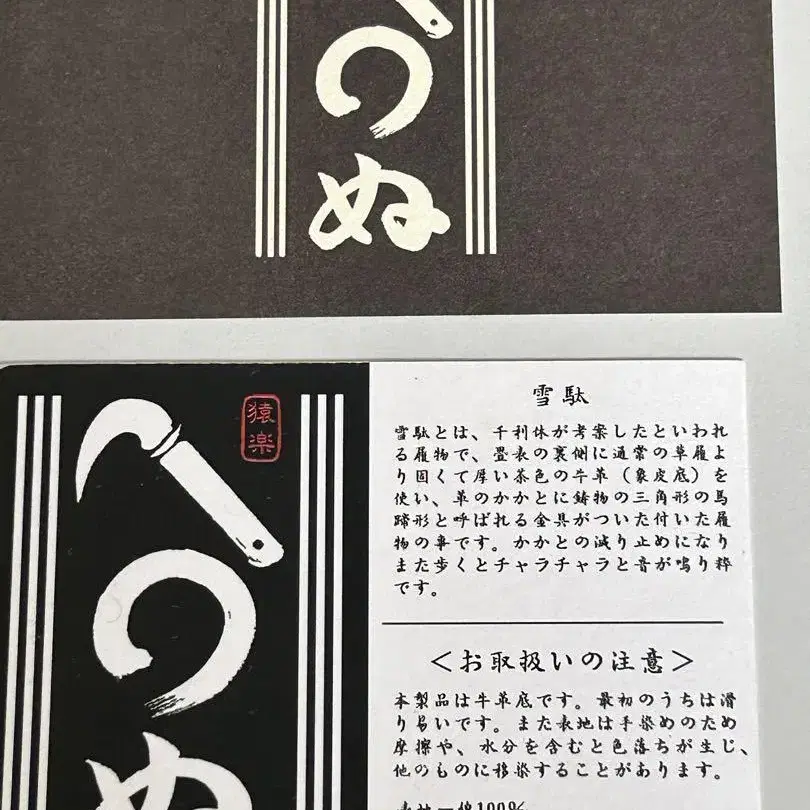 ぬ
猿楽
ぬ
雪駄
雪駄とは、千利休が考案したといわれ
る履物で、畳表の裏側に通常の草履よ
り固くて厚い茶色の牛革（象皮底）を
使い、革のかかとに鋳物の三角形の馬
蹄形と呼ばれる金具がついた付いた履
物の事です。かかとの減り止めになり
また歩くとチャラチャラと音が鳴り粋
です。
＜お取扱いの注意＞
本製品は牛革底です。最初のうちは滑
り易いです。また表地は手染めのため
摩擦や、水分を含むと色落ちが生じ、
他のものに移染することがあります。
100%